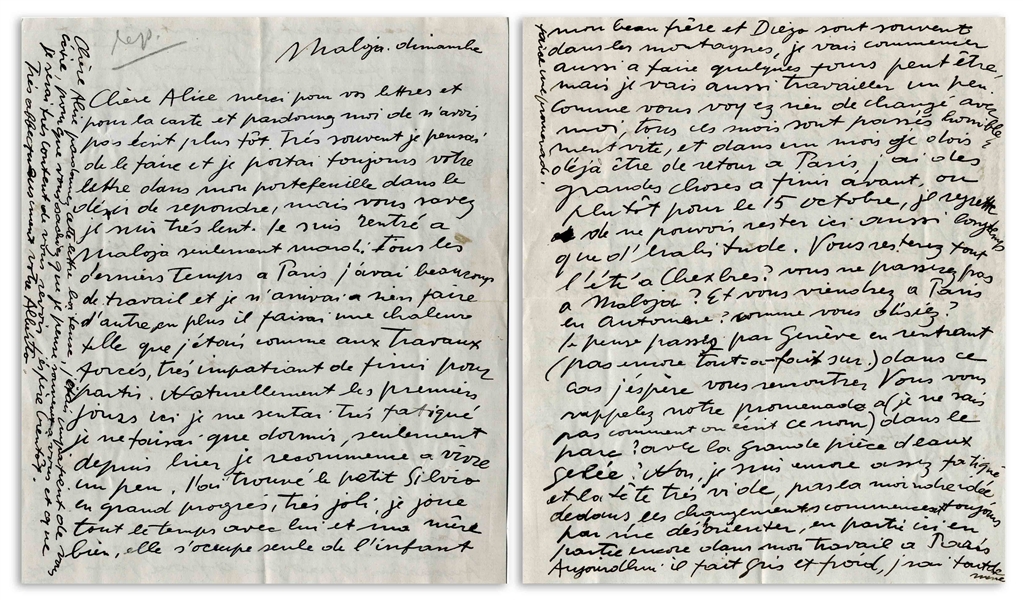 rep.
Maloja. dimanche
Chère Alice merci pour vos lettres et
pour la carte et pardonnez moi de n'avoir
pas écrit plus tôt. Très souvent je pensai
de le faire et je portai toujours votre
lettre dans mon portefeuille dans le
désir de repondre, mais vous savez
je suis très lent. Je suis rentré a
Maloja seulement mardi. tous les
derniers temps a Paris j'avai beaucoup
de travail et je n'arrivai a rien faire
d'autre, en plus il faisai une chaleur
telle que j'étais comme aux Travaux
forcés, très impatiant de finir pour
partir. Naturellement les premiers
jours ici je me sentai très fatigué
je ne faisai que dormir, seulement
depuis hier je recommence a vivre
un peu. J'ai trouvé le petit Silvio
en grand progrès, très joli, je joue
tout le temps avec lui et ma mère
bien, elle s'occupe seule de l'infant
mon beau frère et Diego sont souvent
dans les montagnes, je vais commencer
aussi a faire quelques tours peut être,
mais je vais aussi travailler un peu.
Comme vous voyez rien de changé avec
moi, tous ces mois sont passés horrible-
ment vite, et dans un mois je dois
déjà être de retour a Paris, j'ai des
grandes choses a finir avant, ou
plutôt pour le 15 octobre, je regrette
de ne pouvoir rester ici aussi longtemps
que d'habitude. Vous resterez tout
l'été a Chexbres? vous ne passerez pas
a Maloja? Et vous viendrez a Paris
en automne? comme vous disiez?
Je pense passer par Genève en rentrant
(pas encore tout-a-fait sur) dans ce
cas j'espère vous remontrer Vous vous
rappelez notre promenade a (je ne sais
pas comment on écrit ce nom) dans le
parc? avec la grande pièce d'eaux
gelée? Non, je suis encore assez fatigué
et la tête très vide, pas la moindre idée
dedans, les changements commencent toujours
par me désorienter, en partie ici en
partie encore dans mon travail a Paris
Aujourdhui il fait gris et froid, j'irai tout de
meme
faire une promenade.
Chère Alice pardonnez cette lettre bien terne, j'étais impatient de vous
écrire, pour que vous sachiez que je pense souvent a vous et que
je serai très content de vous revoir, j'espère bientôt.
Très affectueusement votre Alberto.